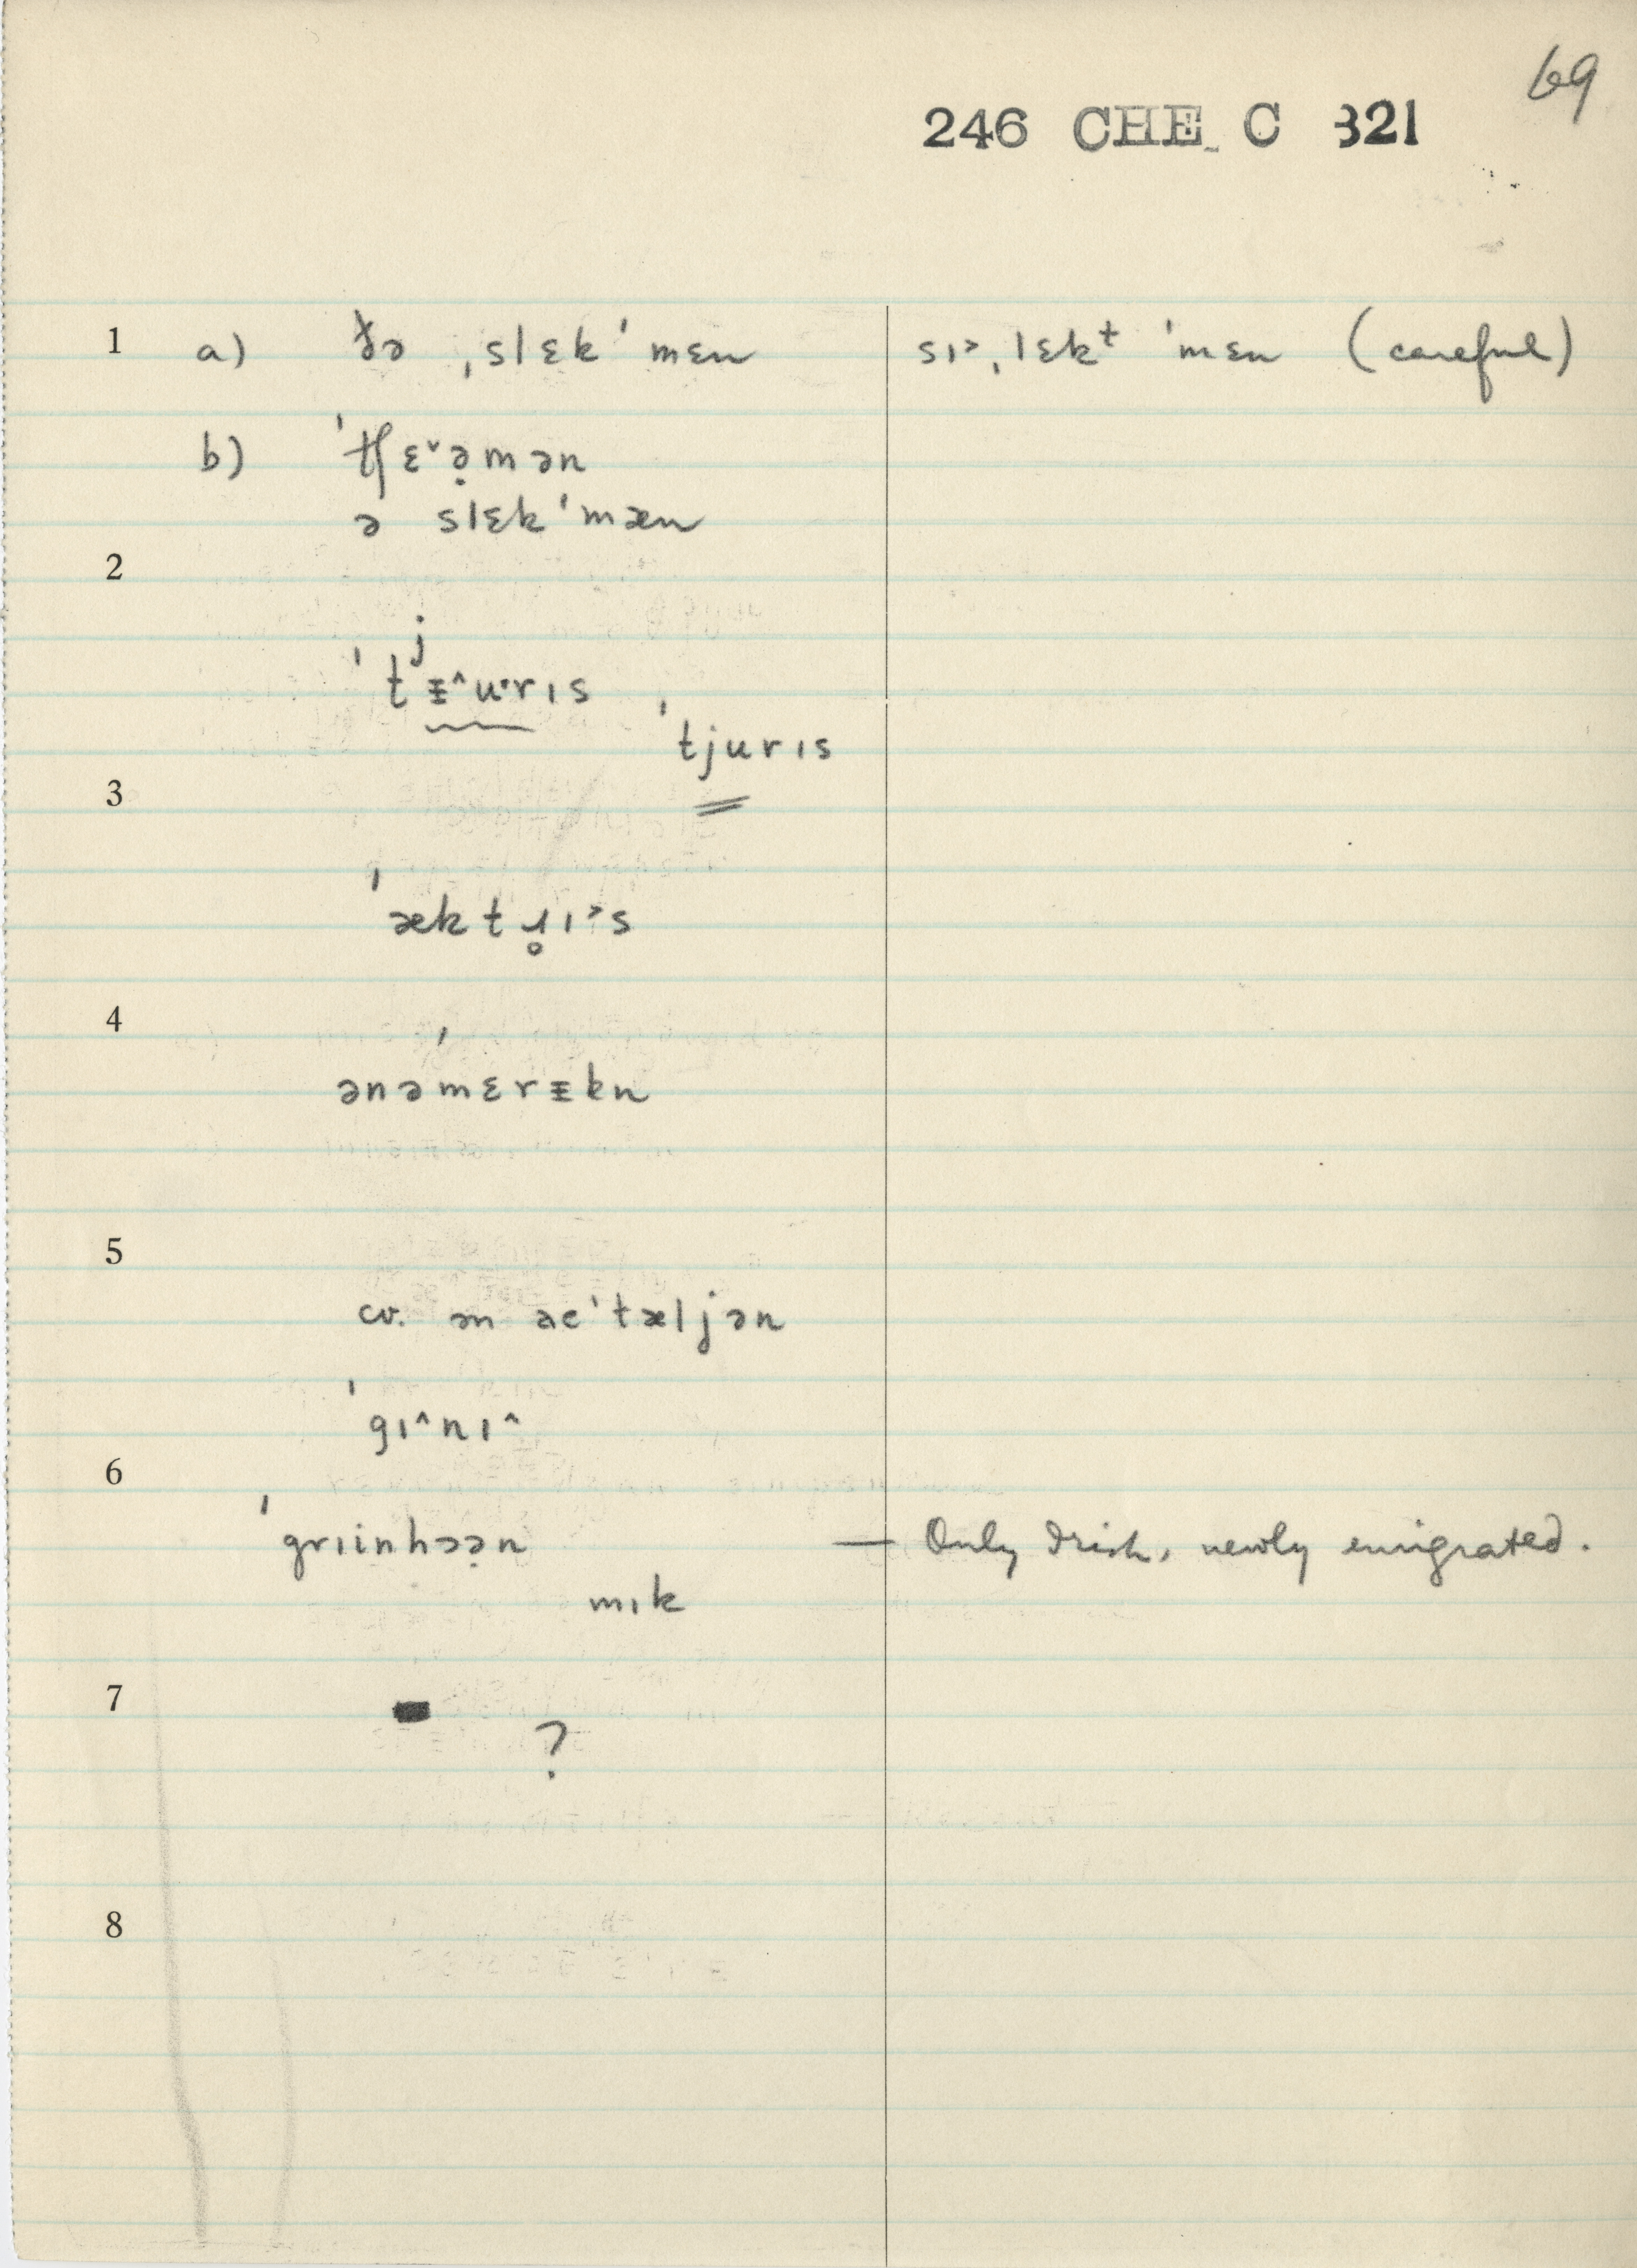 69
246 CHE C 321
1 a) ðə ˌslɛkˈmɛn sɪ˃ˌlɛkᵗ ˈmɛn (careful)
b) ˈtʃɛ˅ə̣mən
ə slɛkˈmæn
2
j
ˈtᵻ˄u·rɪs
ˈtjurɪs
3
ˈæktɹ̥ɪ˃s
4
ənəˈmɛrᵻkn
5
cv. ən aeˈtæljən
ˈgɪ˄nɪ˄
6
ˈgrɪinhɔə̣n — Only Irish, newly emigrated.
mɪk
7
?
8